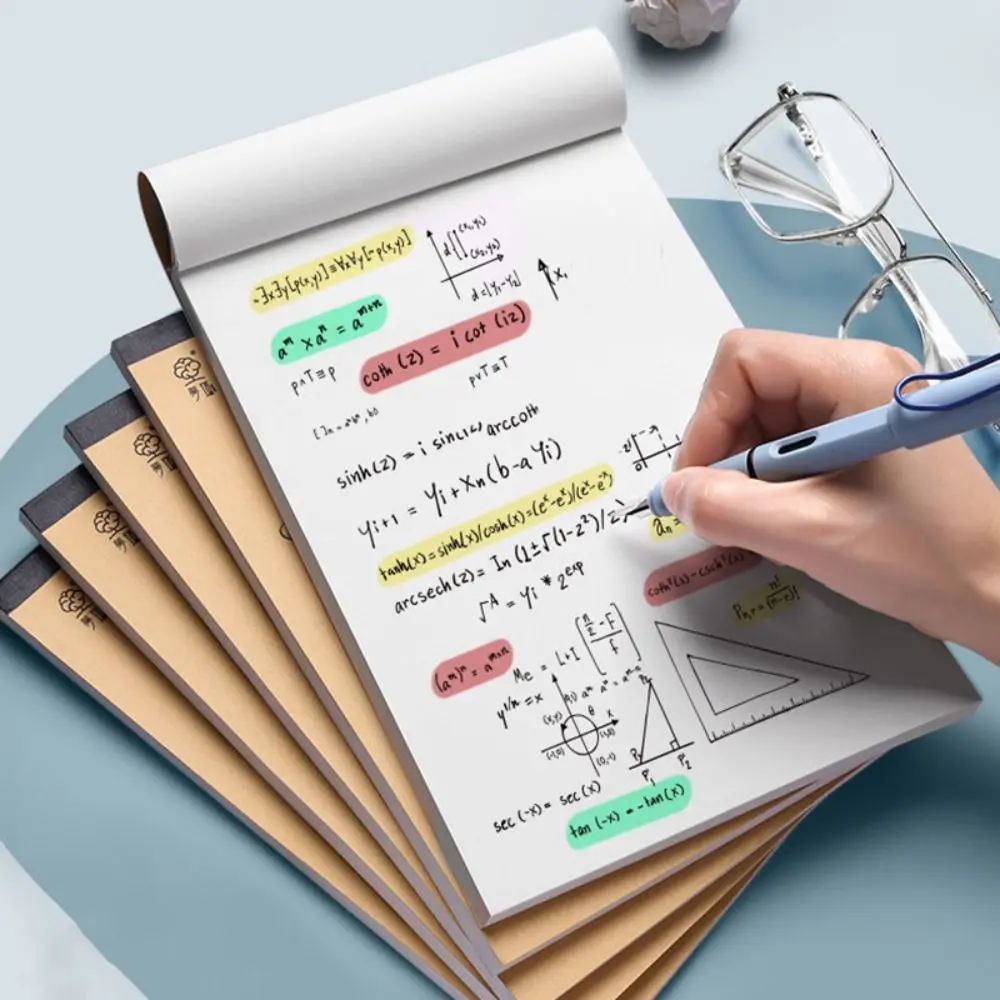 ¬∃x∃y[p(x,y)]≡∀x∀y[¬p(x,y)]
(x₁,y₁)
d
(x₂,y₂)
d=|y₁-y₂|
x₁
aᵐ × aⁿ = aᵐ⁺ⁿ
coth (z) = i cot (iz)
p∧T≡p
p∨T≡T
sinh(z) = i sin
arccoth
yi+1 = yi + xn(b-a yi)
tanh(x)=sinh(x)/cosh(x)=(eˣ-eˣ)/(eˣ-eˣ)
arcsech(z)= In (1±√(1-z²)/z)
0
an =
√A = yi * 2ᵉˣᵖ
coth²(x)-csch²(x)
Pn,r = n!/(n-r)!
(aᵐ)ⁿ = aᵐˣⁿ
Me = L+I [(n/2 - F)/f]
y¹/ⁿ = x
(0,1)
(x,y)
θ
x
(-1,0)
(1,0)
(0,-1)
P₁
P₂
sec (-x) = sec (x)
tan (-x) = -tan(x)